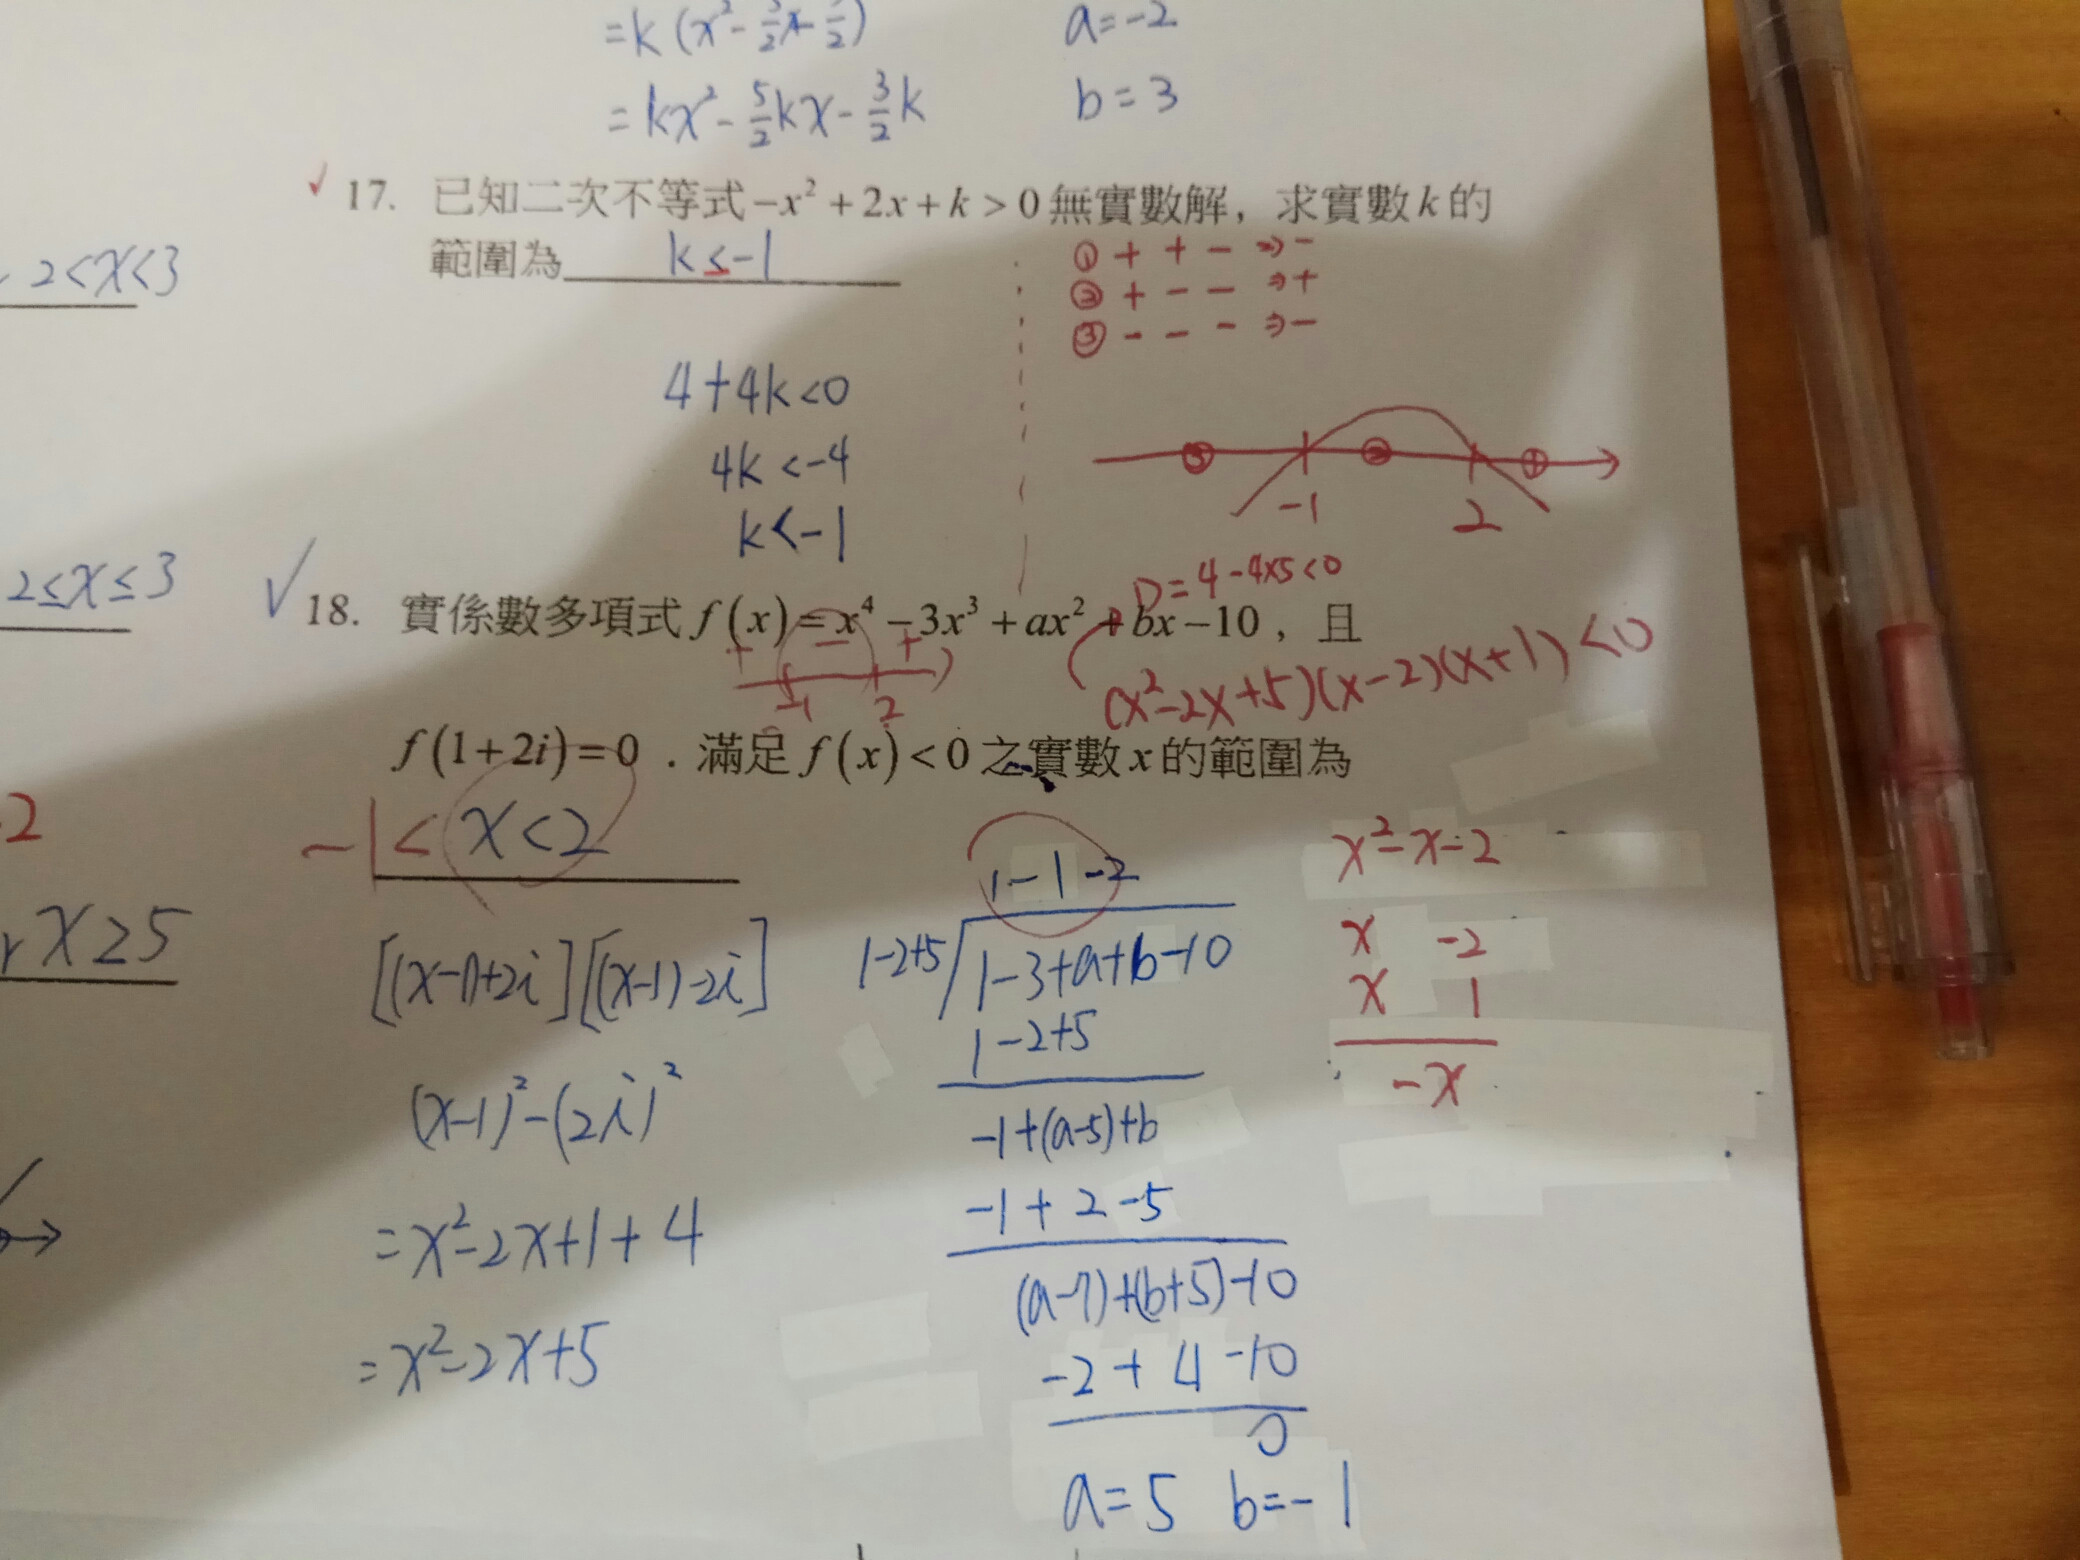 a=-2
=kx²-5/2kx-3/2k
b=3
17. 已知二次不等式-x²+2x+k>0無實數解，求實數k的
範圍為 k≤-1
① + + - ⇒ -
② + - - ⇒ +
③ - - - ⇒ -
2<x<3
4+4k<0
4k<-4
k<-1
③ ② ①
-1 2
2≤x≤3
D=4-4×5<0
18. 實係數多項式f(x)=x⁴-3x³+ax²+bx-10，且
+ - +
-1 2
(x²-2x+5)(x-2)(x+1)<0
f(1+2i)=0．滿足f(x)<0之實數x的範圍為
-1<x<2
2
x≥5
[(x-1)+2i][(x-1)-2i]
(x-1)²-(2i)²
=x²-2x+1+4
=x²-2x+5
1-1-2
1-2+5 1-3+a+b-10
1-2+5
-1+(a-5)+b
-1+2-5
(a-7)+(b+5)-10
-2+4-10
0
a=5 b=-1
x²-x-2
x -2
x 1
-x